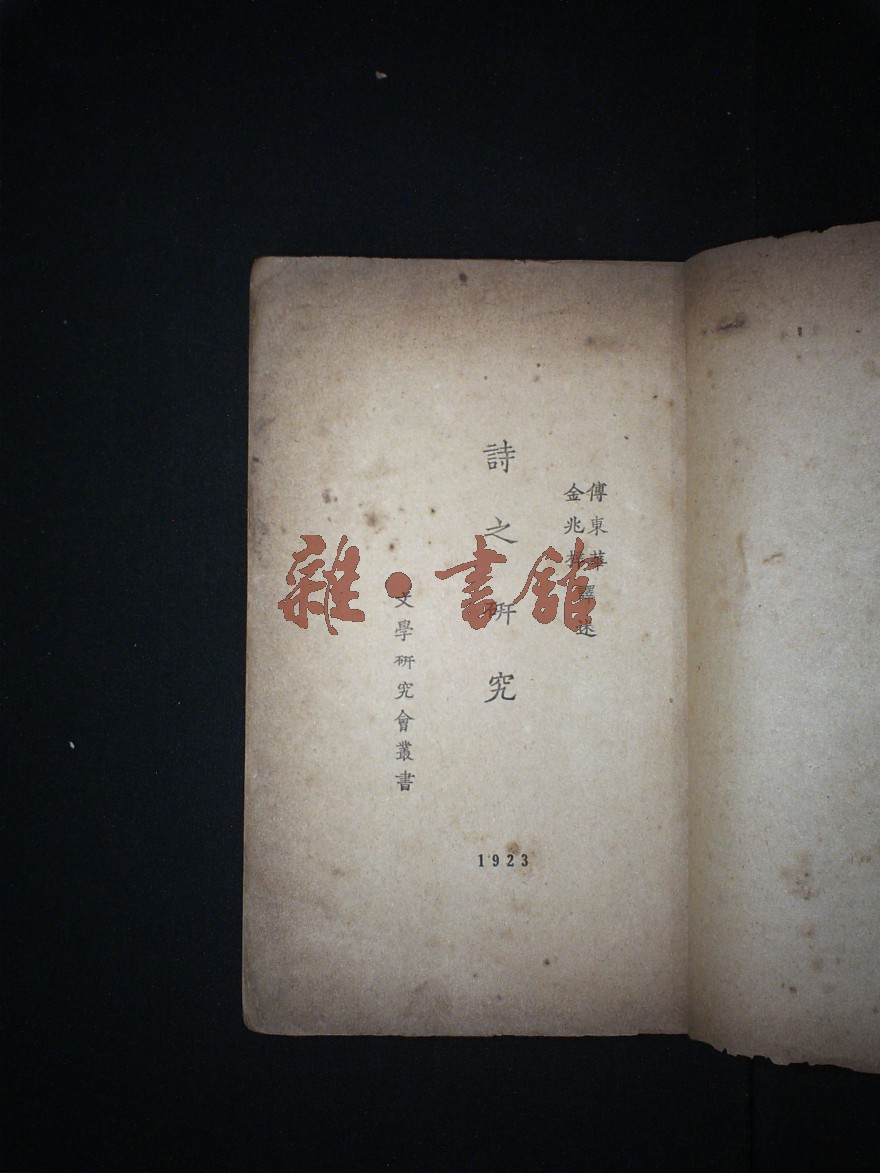 傅東華
金兆梓
譯述
詩之研究
文學研究會叢書
1923
雜·書館